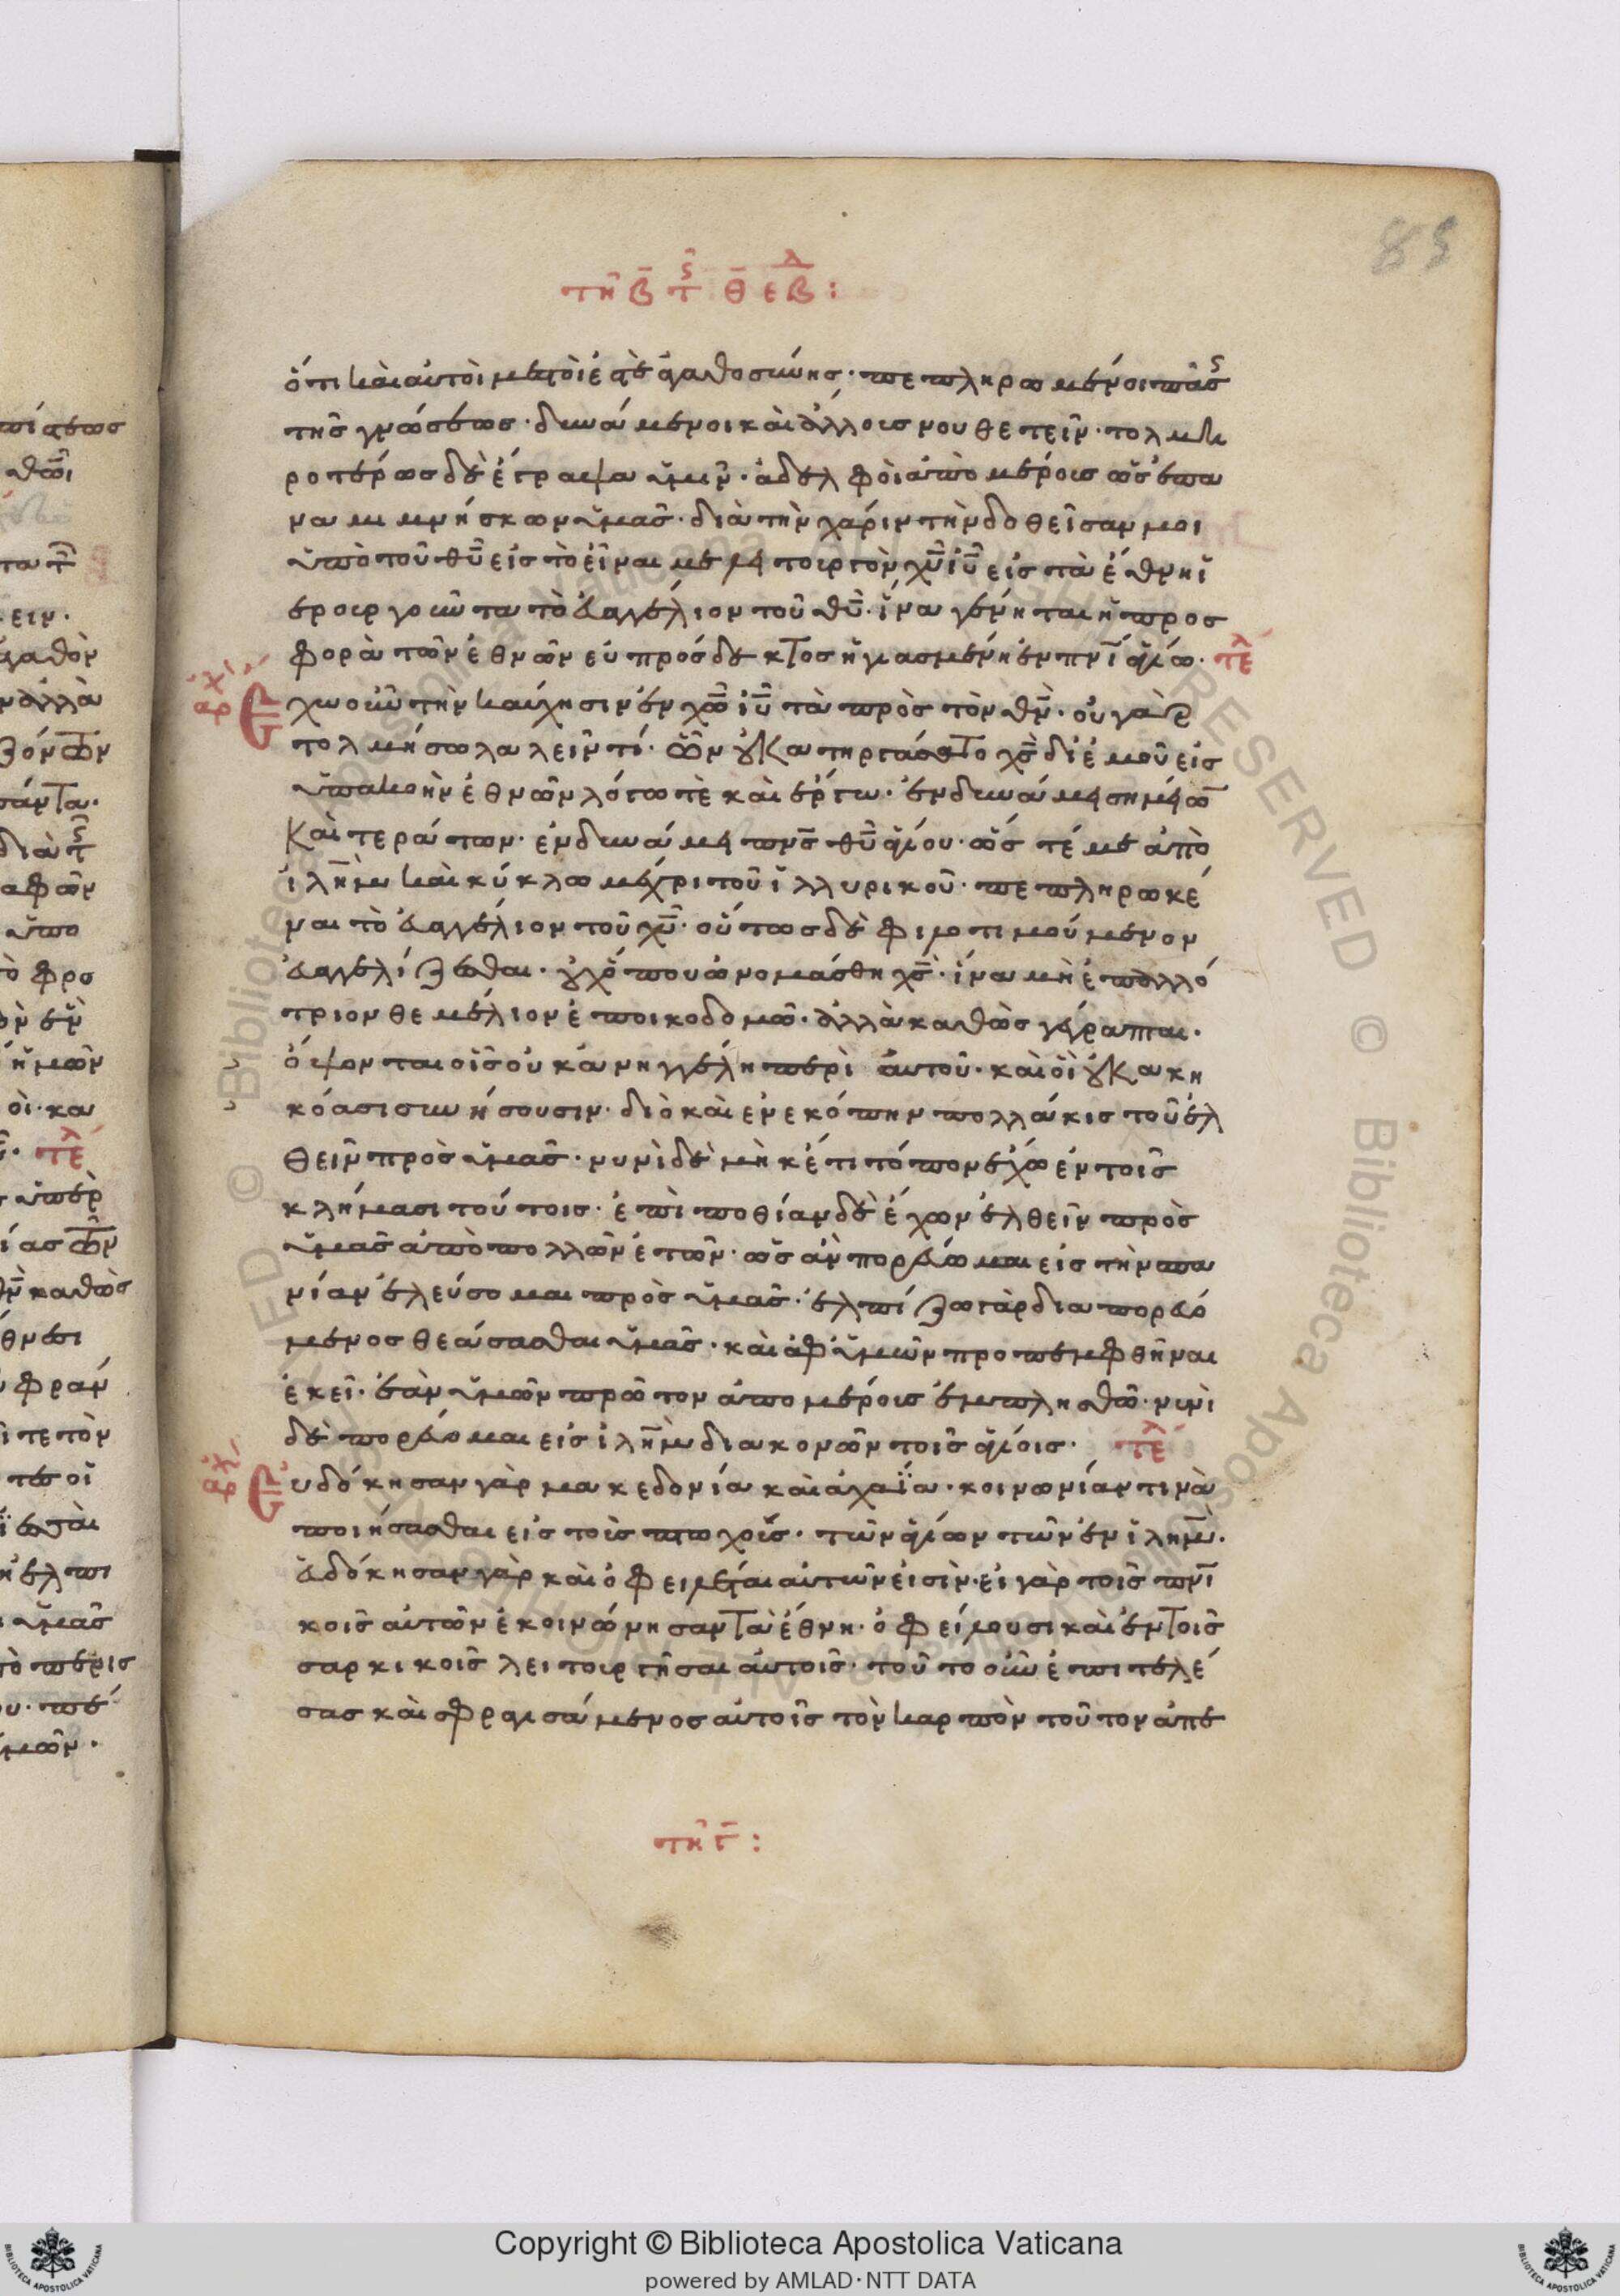 83
τῇ β̅ τ ς̑ θ̅ εβ λ :
ὅτι καὶ αὐτοὶ μεστοί ἐστε ἀγαθοσύνης· πεπληρωμένοι πάσ
τῆς γνώσεως· δυνάμενοι καὶ ἄλλους νουθετεῖν· τολμη
ροτέρως δὲ ἔγραψα ὑμῖν· ἀδελφοὶ ἀπὸ μέρους ὡς ἐπα
ναμιμνήσκων ὑμᾶς· διὰ τὴν χάριν τὴν δοθεῖσαν μοι
ὑπὸ τοῦ θῡ εἰς τὸ εἶναι με λειτουργὸν χῡ ἰῡ εἰς τὰ ἔθνη ἱ
ερουργοῦντα τὸ εὐαγγέλιον τοῦ θῡ· ἵνα γένηται ἡ προσ
φορὰ τῶν ἐθνῶν εὐπρόσδεκτος ἡγιασμένη ἐν πνι̅ ἁγίω· τε̅λ
αρχ Ἔχω οὖν τὴν καύχησιν ἐν χω̅ ἰῡ τὰ πρὸς τὸν θν̅· οὐ γὰρ
τολμήσω λαλεῖν τί· ὧν οὐ κατηργάσατο χς̅ δι' ἐμοῦ εἰς
ὑπακοὴν ἐθνῶν λόγω τὲ καὶ ἔργω· ἐν δυνάμει σημείω̅
καὶ τεράτων· ἐν δυνάμει πνς̅ θῡ ἁγίου· ὥς τέ με ἀπὸ
ἰλη̅μ καὶ κύκλω μέχρι τοῦ ἰλλυρικοῦ· πεπληρωκέ
ναι τὸ εὐαγγέλιον τοῦ χῡ· οὕτως δὲ φιλοτιμούμενον
εὐαγγελίζεσθαι· οὐχ ὅπου ὠνομάσθη χς̅· ἵνα μὴ ἐπ' ἀλλό
τριον θεμέλιον ἐποικοδομῶ· ἀλλὰ καθὼς γέγραπται·
ὄψονται οἷς οὐκ ἀνηγγέλη περὶ αὐτοῦ· καὶ οἳ οὐκ ἀκη
κόασι συνήσουσιν· διὸ καὶ ἐνεκόπην πολλάκις τοῦ ἐλ
θεῖν πρὸς ὑμᾶς· νυνὶ δὲ μὴ κέτι τόπον ἔχω ἐν τοῖς
κλήμασι τούτοις· ἐπιποθίαν δὲ ἔχων ἐλθεῖν πρὸς
ὑμᾶς ἀπὸ πολλῶν ἐτῶν· ὡς ἂν πορεύωμαι εἰς τὴν σπα
νίαν ἐλεύσομαι πρὸς ὑμᾶς· ἐλπίζω γὰρ διαπορευό
μενος θεάσασθαι ὑμᾶς· καὶ ἀφ' ὑμῶν προπεμφθῆναι
ἐκεῖ· ἐὰν ὑμῶν πρῶτον ἀπο μέρους ἐμπλησθῶ· νυνὶ
δὲ πορεύομαι εἰς ἰλη̅μ διακονῶν τοῖς ἁγίοις· τε̅λ
αρχ Εὐδόκησαν γὰρ μακεδονία καὶ ἀχαΐα· κοινωνίαν τινὰ
ποιήσασθαι εἰς τοὺς πτωχοὺς· τῶν ἁγίων τῶν ἐν ἰλη̅μ·
εὐδόκησαν γὰρ καὶ ὀφειλέται αὐτῶν εἰσὶν· εἰ γὰρ τοῖς πνι̅
κοῖς αὐτῶν ἐκοινώνησαν τὰ ἔθνη· ὀφείλουσι καὶ ἐν τοῖς
σαρκικοῖς λειτουργῆσαι αὐτοῖς· τοῦτο οὖν ἐπιτελέ
σας καὶ σφραγισάμενος αὐτοῖς τὸν καρπὸν τοῦτον ἀπε
τῇ γ̅ :
Copyright © Biblioteca Apostolica Vaticana
powered by AMLAD·NTT DATA